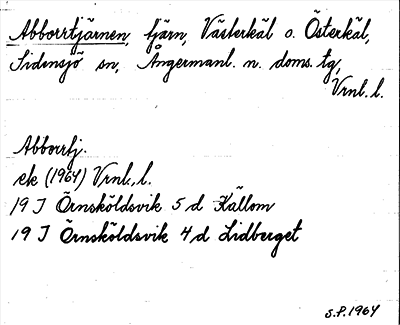 Abborrtjärnen, tjärn, Västerkäl o. Österkäl,
Sidensjö sn, Ångermanl. n. doms. tg,
Vrnl. l.
Abborrtj.
ek (1964) Vrnl., l.
19 J Örnsköldsvik 5 d Källom
19 J Örnsköldsvik 4 d Lidberget
S.P. 1964